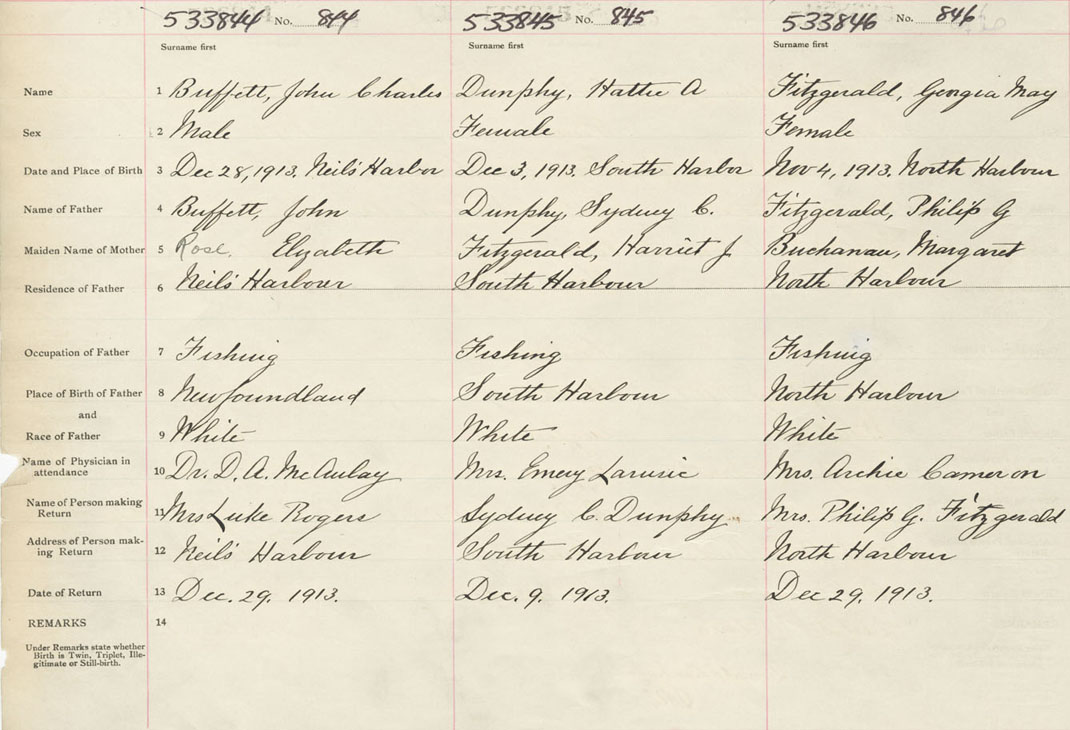 533844 No. 844 533845 No. 845 533846 No. 846
Surname first Surname first Surname first
Name 1 Buffett, John Charles Dunphy, Hattie A Fitzgerald, Georgia May
Sex 2 Male Female Female
Date and Place of Birth 3 Dec 28, 1913. Neil's Harbor Dec 3, 1913. South Harbor Nov 4, 1913. North Harbour
Name of Father 4 Buffett, John Dunphy, Sydney C. Fitzgerald, Philip G
Maiden Name of Mother 5 Rose. Elizabeth Fitzgerald, Harriet J Buchanan, Margaret
Residence of Father 6 Neil's Harbour South Harbour North Harbour
Occupation of Father 7 Fishing Fishing Fishing
Place of Birth of Father 8 Newfoundland South Harbour North Harbour
and
Race of Father 9 White White White
Name of Physician in
attendance 10 Dr. D. A. McAulay Mrs. Emery Larusic Mrs. Archie Cameron
Name of Person making
Return 11 Mrs Luke Rogers Sydney C. Dunphy Mrs. Philip G. Fitzgerald
Address of Person mak-
ing Return 12 Neil's Harbour South Harbour North Harbour
Date of Return 13 Dec. 29. 1913. Dec. 9. 1913. Dec 29. 1913.
REMARKS 14
Under Remarks state whether
Birth is Twin, Triplet, Ille-
gitimate or Still-birth.